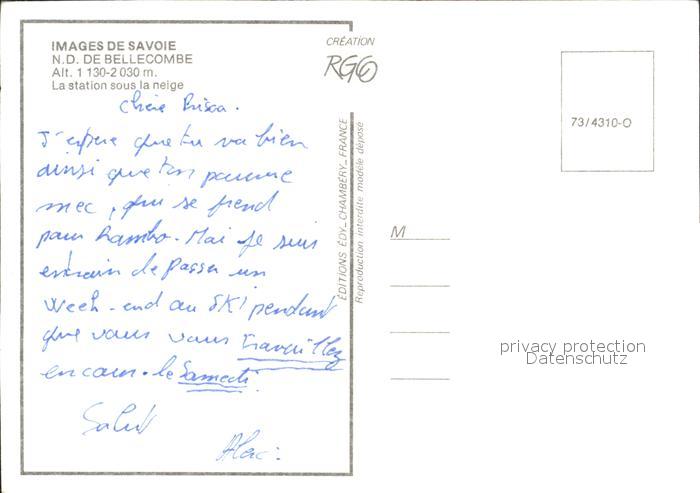 IMAGES DE SAVOIE
N.D. DE BELLECOMBE
Alt. 1 130-2 030 m.
La station sous la neige
CRÉATION
RGO
73/4310-O
ÉDITIONS ÉDY_CHAMBÉRY_FRANCE
Reproduction interdite modèle déposé
chère
J'espère que tu va bien
ainsi que ton pauvre
mec, qui se prend
pour Rambo. Moi je suis
entrain de passer un
week-end au SKI pendant
que vous vous travaillez
en cour. le Samedi.
Salut
M
privacy protection
Datenschutz